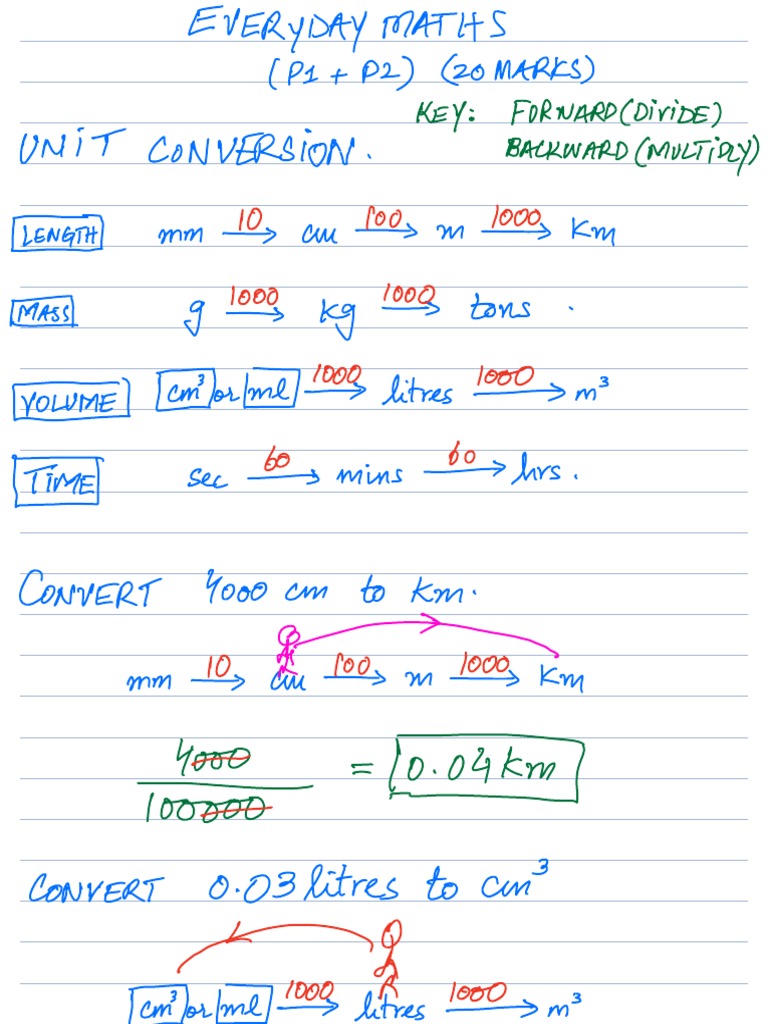 EVERYDAY MATHS
(P1 + P2) (20 MARKS)
KEY: FORWARD (DIVIDE)
UNIT CONVERSION. BACKWARD (MULTIPLY)
LENGTH mm 10→ cm 100→ m 1000→ Km
MASS g 1000→ kg 1000→ tons .
VOLUME cm³ or ml 1000→ litres 1000→ m³
TIME sec 60→ mins 60→ hrs.
CONVERT 4000 cm to km.
mm 10→ cm 100→ m 1000→ Km
4000
100000
= 0.04 km
CONVERT 0.03 litres to cm³
cm³ or ml 1000→ litres 1000→ m³